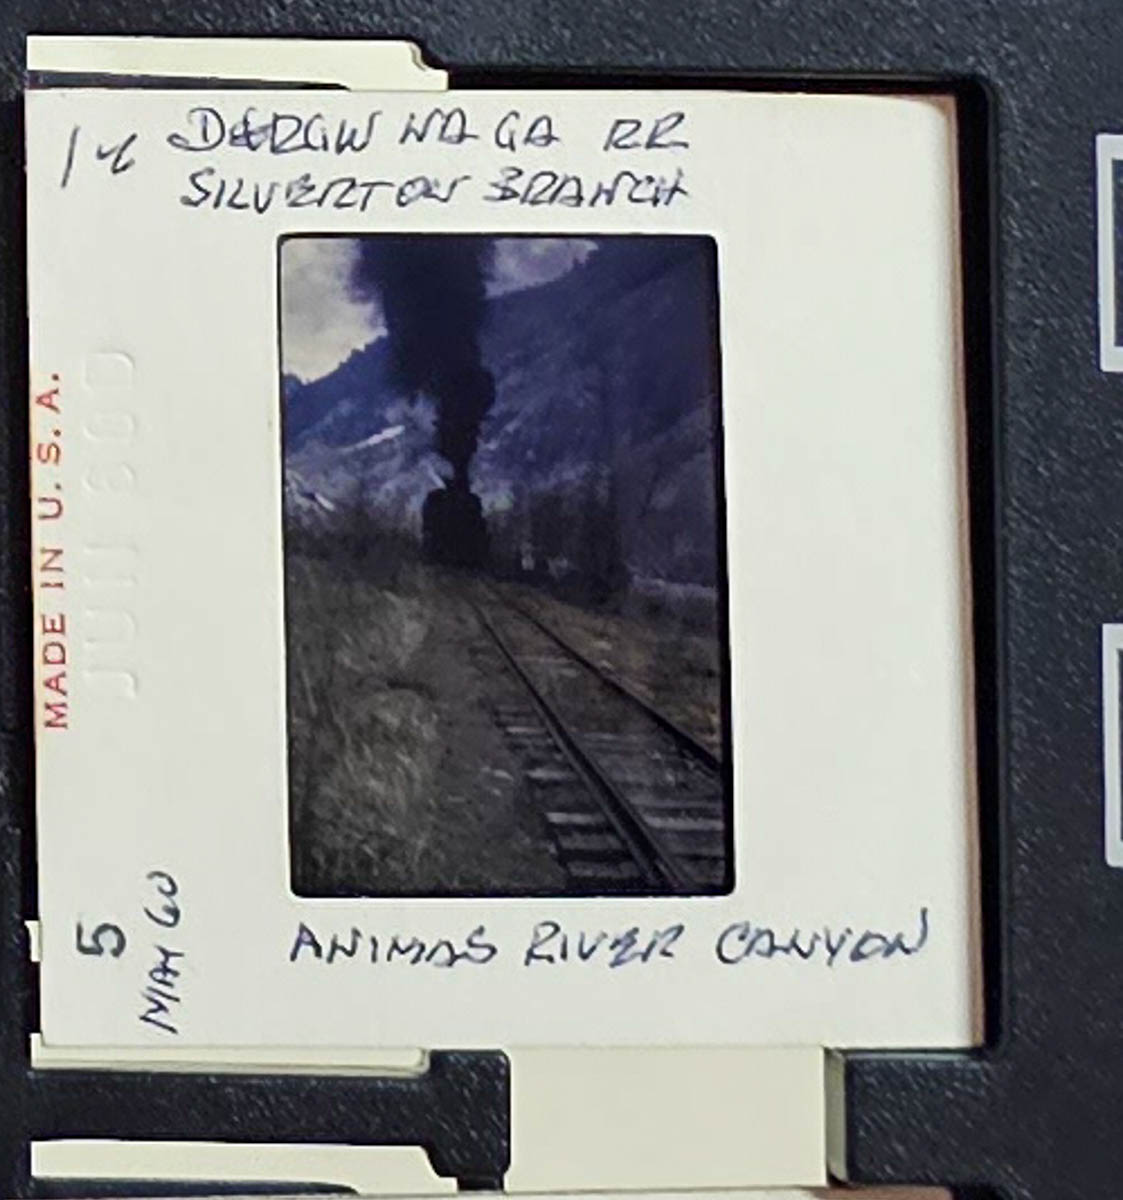 D&RGW NA GA RR
SILVERTON BRANCH
MADE IN U.S.A.
JUN 60D
5
MAY 60
ANIMAS RIVER CANYON